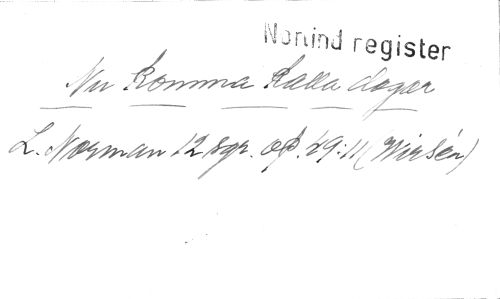 Nonind register
Nu komma kalla dagar
L. Norman 12 sgr. op. 49:11 (Wirsén)